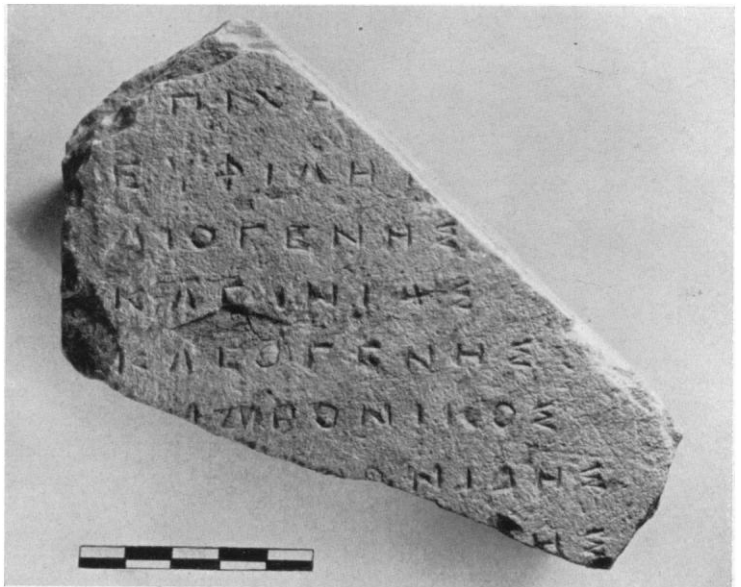 ΕΥΦΙΛΗ
ΔΙΟΓΕΝΗΣ
ΚΛΕΙΝΙΑΣ
ΚΛΕΟΓΕΝΗΣ
ΟΝΙΚΟΣ
ΝΙΔΗΣ
ΗΣ